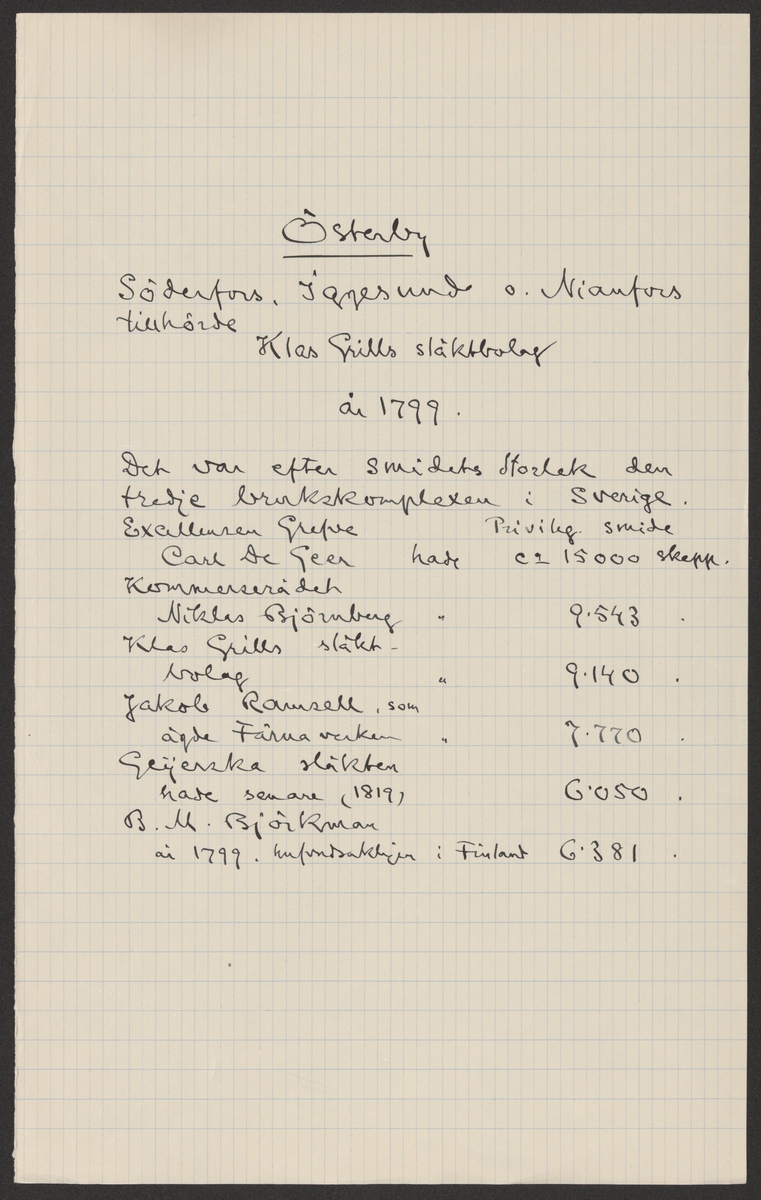 Österby
Söderfors, Iggesund o. Nianfors
tillhörde
Klas Grills släktbolag
år 1799.
Det var efter smidets storlek den
tredje brukskomplexen i Sverige.
Excellensen Grefve Privileg. smide
Carl De Geer hade ca 15000 skepp.
Kommerserådet
Niklas Björnberg " 9.543 .
Klas Grills släkt-
bolag " 9.140 .
Jakob Ramsell, som
ägde Färna verken " 7.770 .
Geijerska släkten
hade senare (1819) 6.050 .
B. M. Björkman
år 1799. hufvudsakligen i Finland 6.381 .